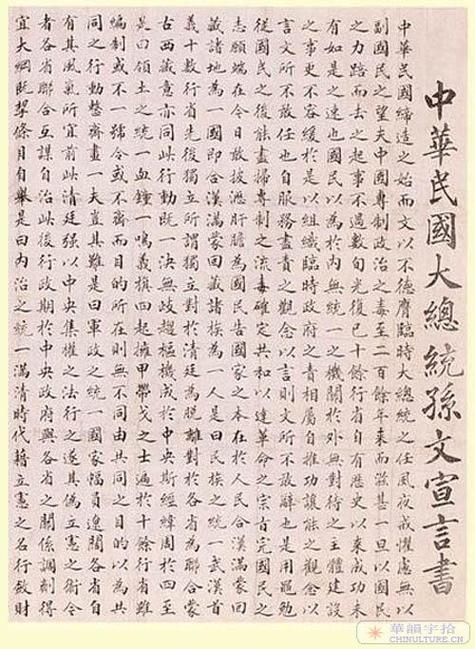 中華民國大總統孫文宣言書
中華民國締造之始而文以不德膺臨時大總統之任夙夜戒懼慮無以
副國民之望夫中國專制政治之毒至二百餘年來而滋甚一旦以國民
之力踣而去之起事不過數旬光復已十餘行省自有歷史以來成功未
有如是之速也國民以為於內無統一之機關於外無對待之主體建設
之事更不容緩於是以組織臨時政府之責相屬自推功讓能之觀念以
言文所不敢任也自服務盡責之觀念以言則文所不敢辭也是用黽勉
從國民之後能盡掃專制之流毒確定共和以達革命之宗旨完國民之
志願端在今日敢披瀝肝膽為國民告國家之本在於人民合漢滿蒙回
藏諸地為一國即合漢滿蒙回藏諸族為一人是曰民族之統一武漢首
義十數行省先後獨立所謂獨立對於清廷為脫離對於各省為聯合蒙
古西藏意亦同此行動既一決無歧趨樞機成於中央斯經緯周於四至
是曰領土之統一血鐘一鳴義旗四起擁甲帶戈之士遍於十餘行省雖
編制或不一號令或不齊而目的所在則無不同由共同之目的以為共
同之行動整齊畫一夫豈其難是曰軍政之統一國家幅員遼闊各省自
有其風氣所宜前此清廷強以中央集權之法行之遂其偽立憲之術今
者各省聯合互謀自治此後行政期於中央政府與各省之關係調劑得
宜大綱既挈條目自舉是曰內治之統一滿清時代藉立憲之名行斂財
華韻宇拾
CHINULTURE.CN